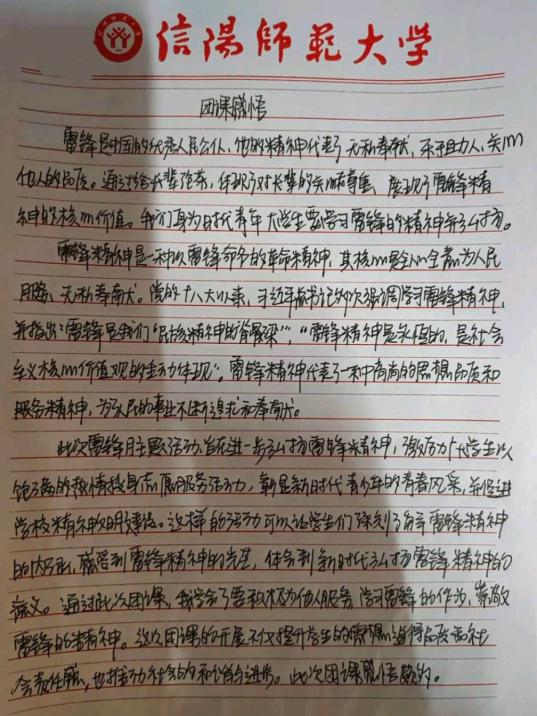 信陽師範大学
团课感悟
雷锋是中国的优秀人民公仆，他的精神代表了无私奉献、乐于助人、关心
他人的品质。通过给长辈，体现了对长辈的关心和尊重，展现了雷锋精
神的核心价值。我们身为时代青年大学生要学习雷锋的精神并弘扬。
雷锋精神是一种以雷锋命名的革命精神，其核心是全心全意为人民
服务、无私奉献。党的十八大以来，习近平总书记多次强调学习雷锋精神，
并指出：雷锋是我们“民族精神的脊梁”，“雷锋精神是永恒的，是社会
主义核心价值观的生动体现”。雷锋精神代表了一种高尚的思想品质和
服务精神，为了人民的事业不断追求和奉献。
此次雷锋月主题活动，旨在进一步弘扬雷锋精神，激励大学生以
饱满的热情投身志愿服务活动，彰显新时代青少年的青春风采，并促进
学校精神文明建设。这样的活动可以让学生们深刻了解雷锋精神
的内涵，感受到雷锋精神的光芒，体会到新时代弘扬雷锋精神的
意义。通过此次团课，我学会了要积极为他人服务，学习雷锋的作为，崇敬
雷锋的精神。这次团课的开展不仅提升学生的思想道德品质和社
会责任感，也推动社会的和谐与进步。此次团课感悟颇多。